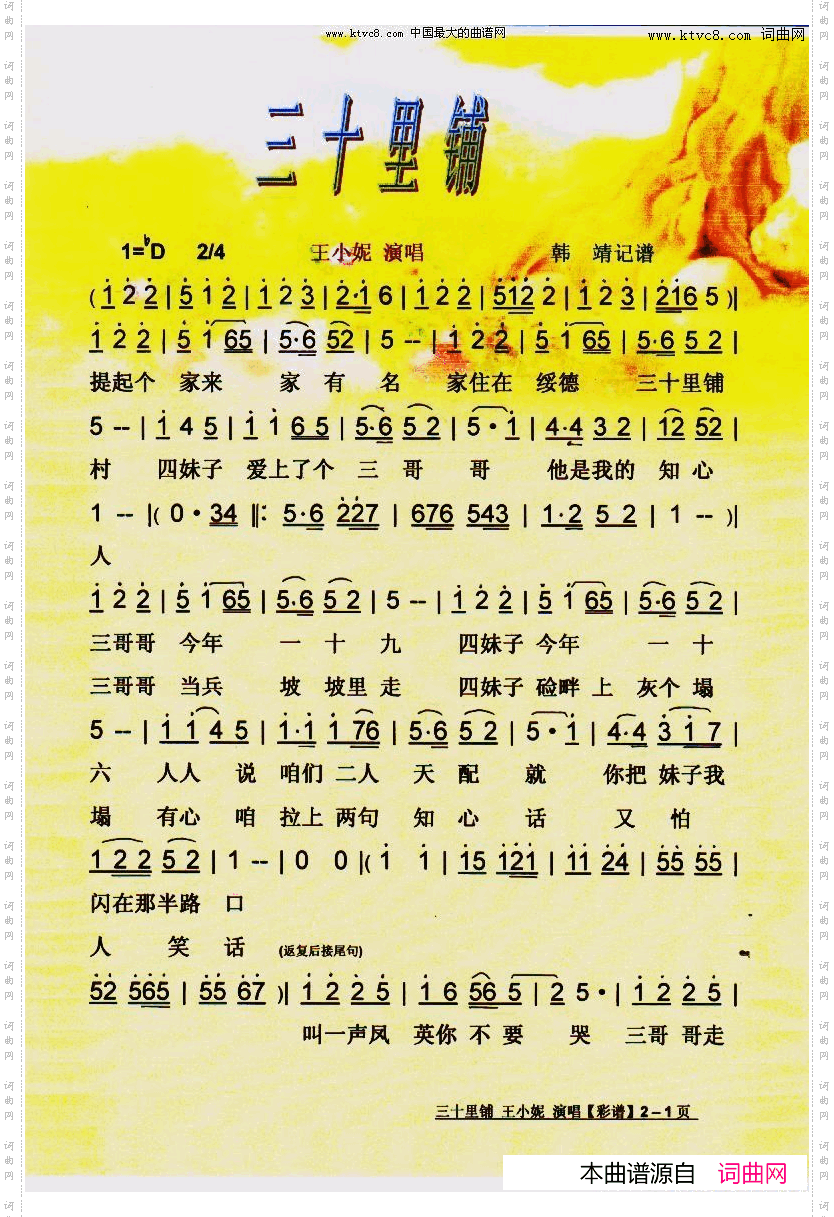 www.ktvc8.com 中国最大的曲谱网
www.ktvc8.com 词曲网
三十里铺
1=♭D 2/4 王小妮 演唱 韩 靖记谱
( 1 2 2 | 5 1 2 | 1 2 3 | 2·1 6 | 1 2 2 | 512 2 | 1 2 3 | 216 5 )|
1 2 2 | 5 1 65 | 5·6 52 | 5 -- | 1 2 2 | 5 1 65 | 5·6 5 2 |
提起个 家来 家 有 名 家住在 绥德 三十里铺
5 -- | 1 4 5 | 1 1 6 5 | 5·6 5 2 | 5·1 | 4·4 3 2 | 12 52 |
村 四妹子 爱上了个 三 哥 哥 他是我的 知 心
1 -- |( 0·34 ‖: 5·6 227 | 676 543 | 1·2 5 2 | 1 -- )|
人
1 2 2 | 5 1 65 | 5·6 5 2 | 5 -- | 1 2 2 | 5 1 65 | 5·6 5 2 |
三哥哥 今年 一 十 九 四妹子 今年 一 十
三哥哥 当兵 坡 坡里 走 四妹子 硷畔 上 灰个 塌
5 -- | 1 1 4 5 | 1·1 1 76 | 5·6 5 2 | 5·1 | 4·4 3 1 7 |
六 人人 说 咱们 二人 天 配 就 你把 妹子我
塌 有心 咱 拉上 两句 知 心 话 又 怕
1 2 2 5 2 | 1 -- | 0 0 |( 1 1 | 15 121 | 11 24 | 55 55 |
闪在那半路 口
人 笑 话 (返复后接尾句)
52 565 | 55 67 )| 1 2 2 5 | 1 6 56 5 | 2 5· | 1 2 2 5 |
叫一声凤 英你 不 要 哭 三哥 哥走
三十里铺 王小妮 演唱【彩谱】2－1页
本曲谱源自 词曲网